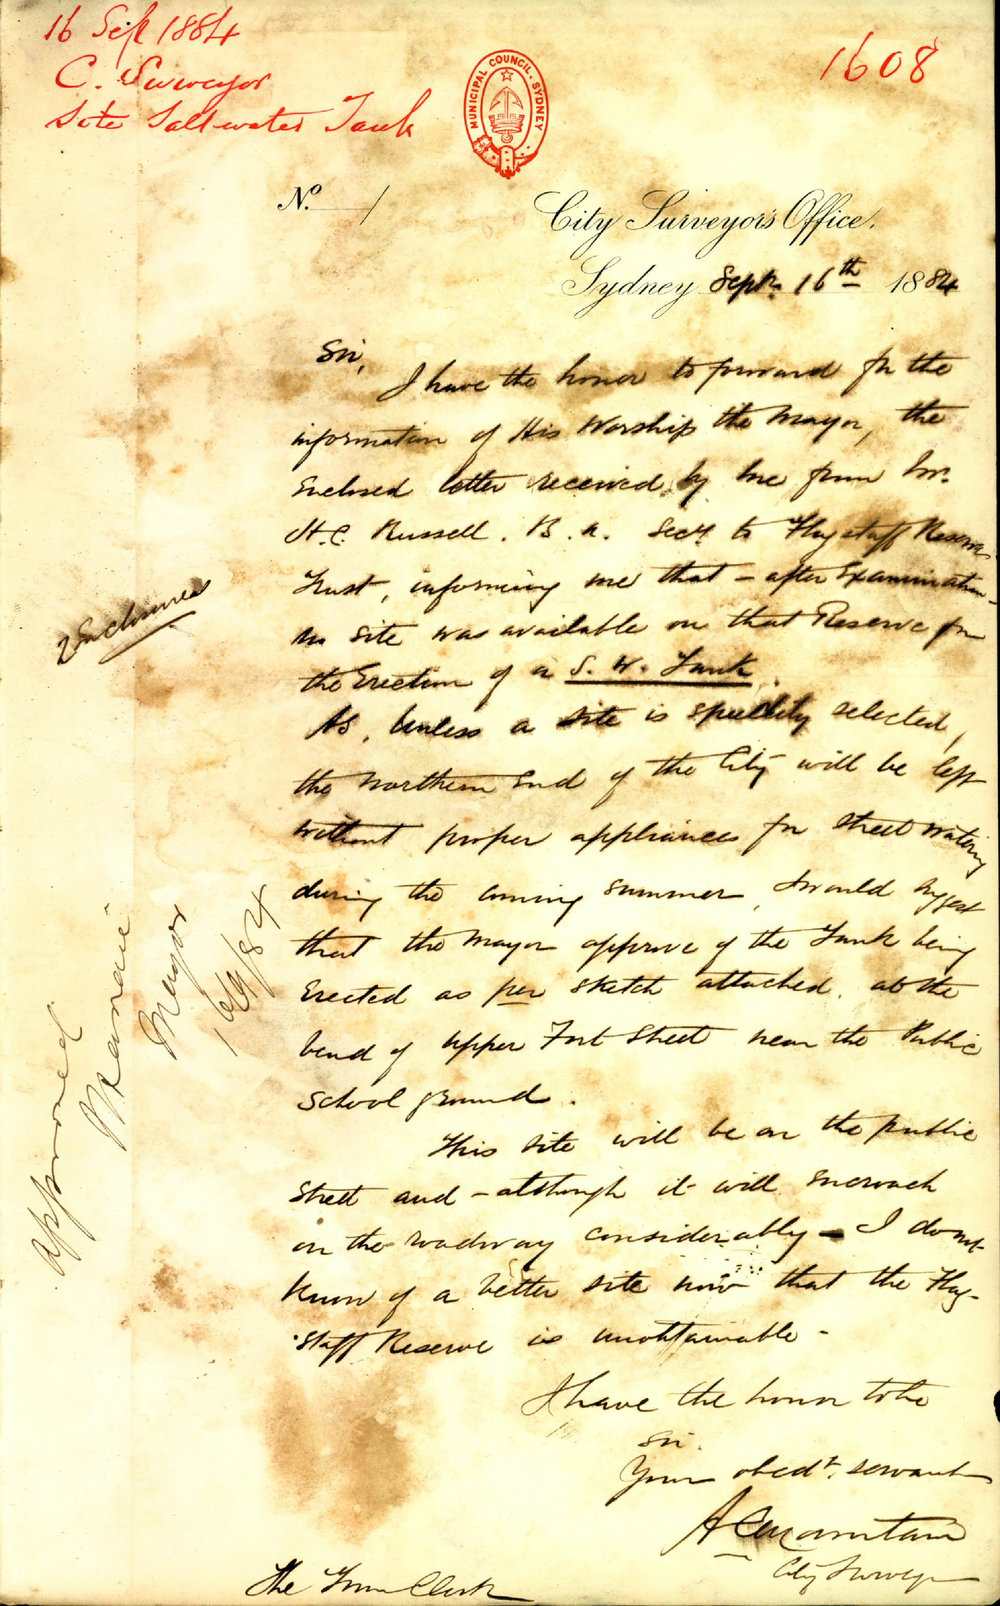 16 Sep 1884
C. Surveyor
Site Saltwater Tank
1608
MUNICIPAL COUNCIL. SYDNEY
No. 1
City Surveyor's Office.
Sydney Sepr. 16th 1884
Sir,
I have the honor to forward for the
information of His Worship the Mayor, the
Enclosed letter received by me from Mr.
H.C. Russell. B.A. Secy to Flagstaff Reserve
Trust, informing me that – after Examination –
no site was available on that Reserve for
the Erection of a S. W. Tank.
As, Unless a site is specially selected,
the Northern End of the City will be left
without proper appliances for Street Watering
during the coming summer, I would suggest
that the Mayor approve of the Tank being
Erected as per sketch attached. at the
bend of Upper Fort Street near the Public
School ground.
This site will be on the public
Street and – although it will encroach
on the roadway considerably – I do not
know of a better site now that the Flag-
staff Reserve is unobtainable –
I have the honor to be
Sir.
Your obedt. servant
A C Mountain
City Surveyor
The Town Clerk
2 Enclosures
Approved
Mayor
16/9/84